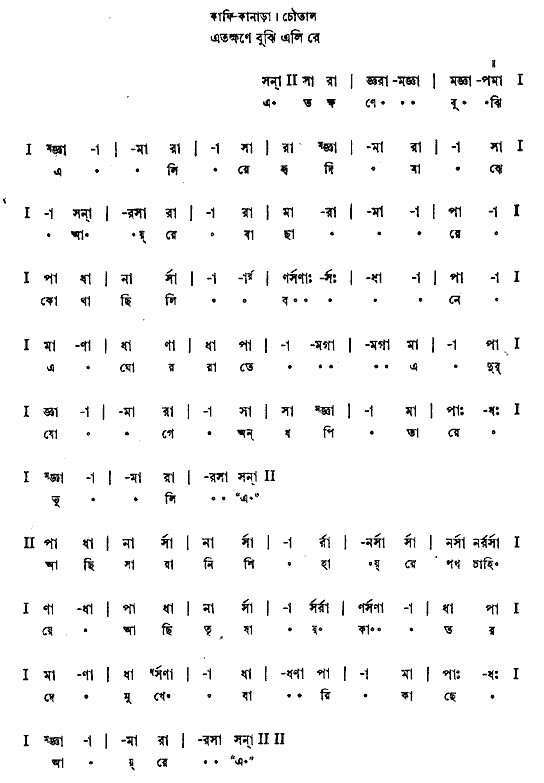 কাফি-কানাড়া। চৌতাল
এতক্ষণে বুঝি এলি রে
সন্‌া II সা রা | জ্ঞরা -মজ্ঞা | মজ্ঞা -পমা I
এ॰ ত ক্ষ ণে॰ ॰ ॰ বু ॰ ॰ঝি
I মজ্ঞা -া | -মা রা | -া সা | রা মজ্ঞা | -মা রা | -া সা I
এ ॰ ॰ লি ॰ রে হৃ দি ॰ মা ॰ ঝে
I -া সন্‌া | -রসা রা | -া রা | মা -রা | -মা -া | পা -া I
॰ আ॰ ॰য়্ রে ॰ বা ছা ॰ ॰ ॰ রে ॰
I পা ধা | না র্সা | -া -র্রা | ণর্সণাঃ -র্সঃ | -ধা -া | পা -া I
কো থা ছি লি ॰ ॰ ব॰॰ ॰ ॰ ॰ নে ॰
I মা -ণা | ধা ণা | ধা পা | -া -মগা | -মগা মা | -া পা I
এ ॰ ঘো র রা তে ॰ ॰॰ ॰॰ এ ॰ দুর্
I জ্ঞা -া | -মা রা | -া সা | সা মজ্ঞা | -া মা | পাঃ -ধঃ I
যো ॰ ॰ গে ॰ অন্ ধ পি ॰ তা রে ॰
I মজ্ঞা -া | -মা রা | -রসা সন্‌া II
ভূ ॰ ॰ লি ॰॰ "এ॰"
II পা ধা | না র্সা | না র্সা | -া র্রা | -নর্সা র্সা | নর্সা নর্রর্সা I
আ ছি সা রা নি শি ॰ হা ॰য়্ রে পথ চাহি॰
I ণা -ধা | পা ধা | না র্সা | -া র্সর্রা | ণর্সণা -া | ধা পা I
য়ে ॰ আ ছি তৃ ষা ॰ র্॰ কা॰॰ ॰ ত র
I মা -ণা | ধা র্সণা | -া ধা | -ধণা পা | -া মা | পাঃ -ধঃ I
দে ॰ মু খে॰ ॰ বা ॰॰ রি ॰ কা ছে ॰
I মজ্ঞা -া | -মা রা | -রসা সন্‌া II II
আ ॰ য়্ রে ॰॰ "এ॰"